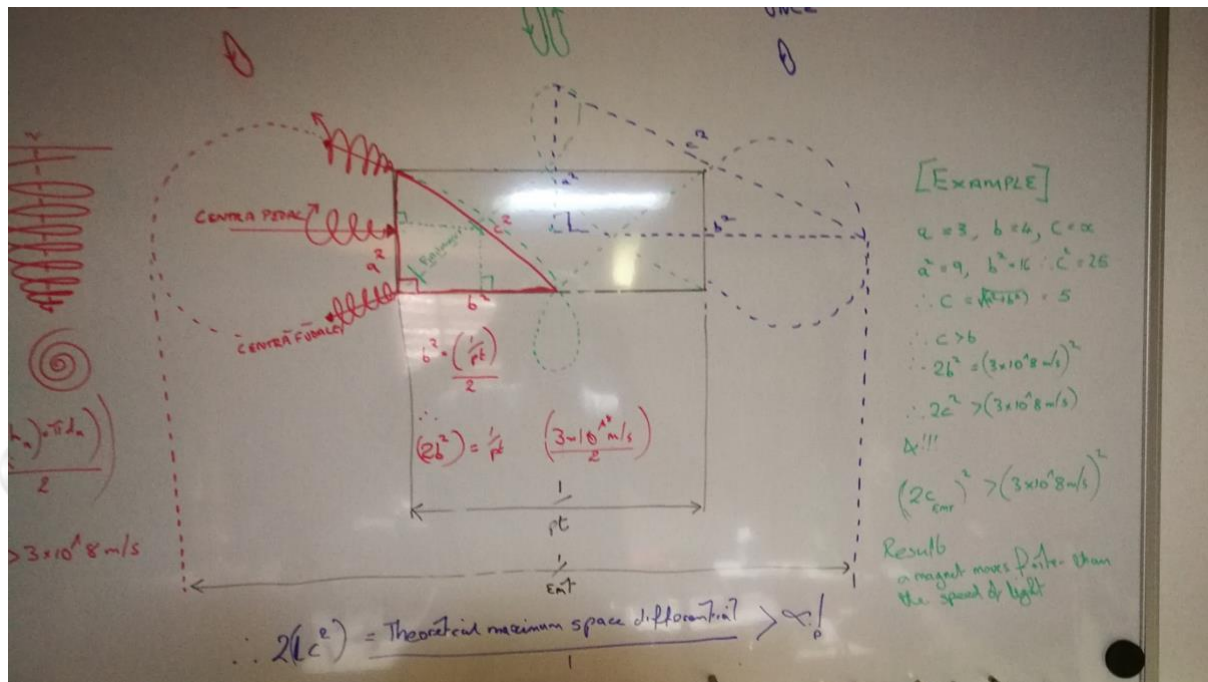 CENTRA PEDAL
a²
c²
b²
CENTRAFUGALEY
b² = (1/pt)
2
∴
(2b²) = 1/pt
(3×10^8 m/s)
2
a²
c²
b²
1
pt
1
Emt
2
> 3×10^8 m/s
∴ 2(1c²) = Theoretical maximum space differential > ∝!
1
[EXAMPLE]
a = 3, b = 4, c = ∝
a² = 9, b² = 16 ∴ c² = 25
∴ c = √(a²+b²) = 5
∴ c > b
∴ 2b² = (3×10^8 m/s)²
∴ 2c² > (3×10^8 m/s)
&!!!
(2c
)² > (3×10^8 m/s)²
Result
a magnet moves faster than
the speed of light